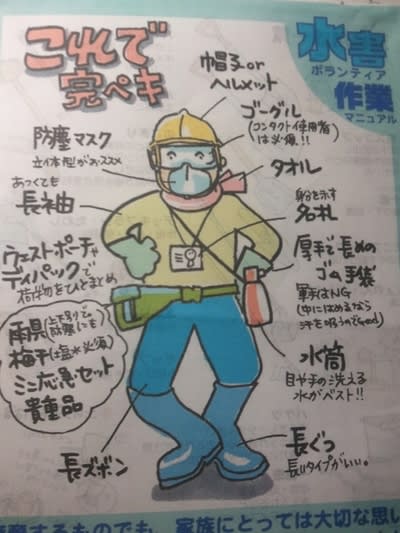 これで
完ペキ
水害
ボランティア
作業
マニュアル
帽子or
ヘルメット
ゴーグル
(コンタクト使用者
は必須!!
防塵マスク
立体型がおススメ
タオル
あつくても
長袖
身分を示す
名札
厚手で長めの
ゴム手袋
軍手はNG
(中にはめるなら
汗を吸うのでgood)
ウエストポーチや
デイパックで
荷物をひとまとめ
雨具(上下別で
防寒にも
梅干(塩水必須)
ミニ応急セット
貴重品
水筒
目や手の洗える
水がベスト!!
長ズボン
長ぐつ
長いタイプがいい。
するものでも、家族にとっては大切な思い